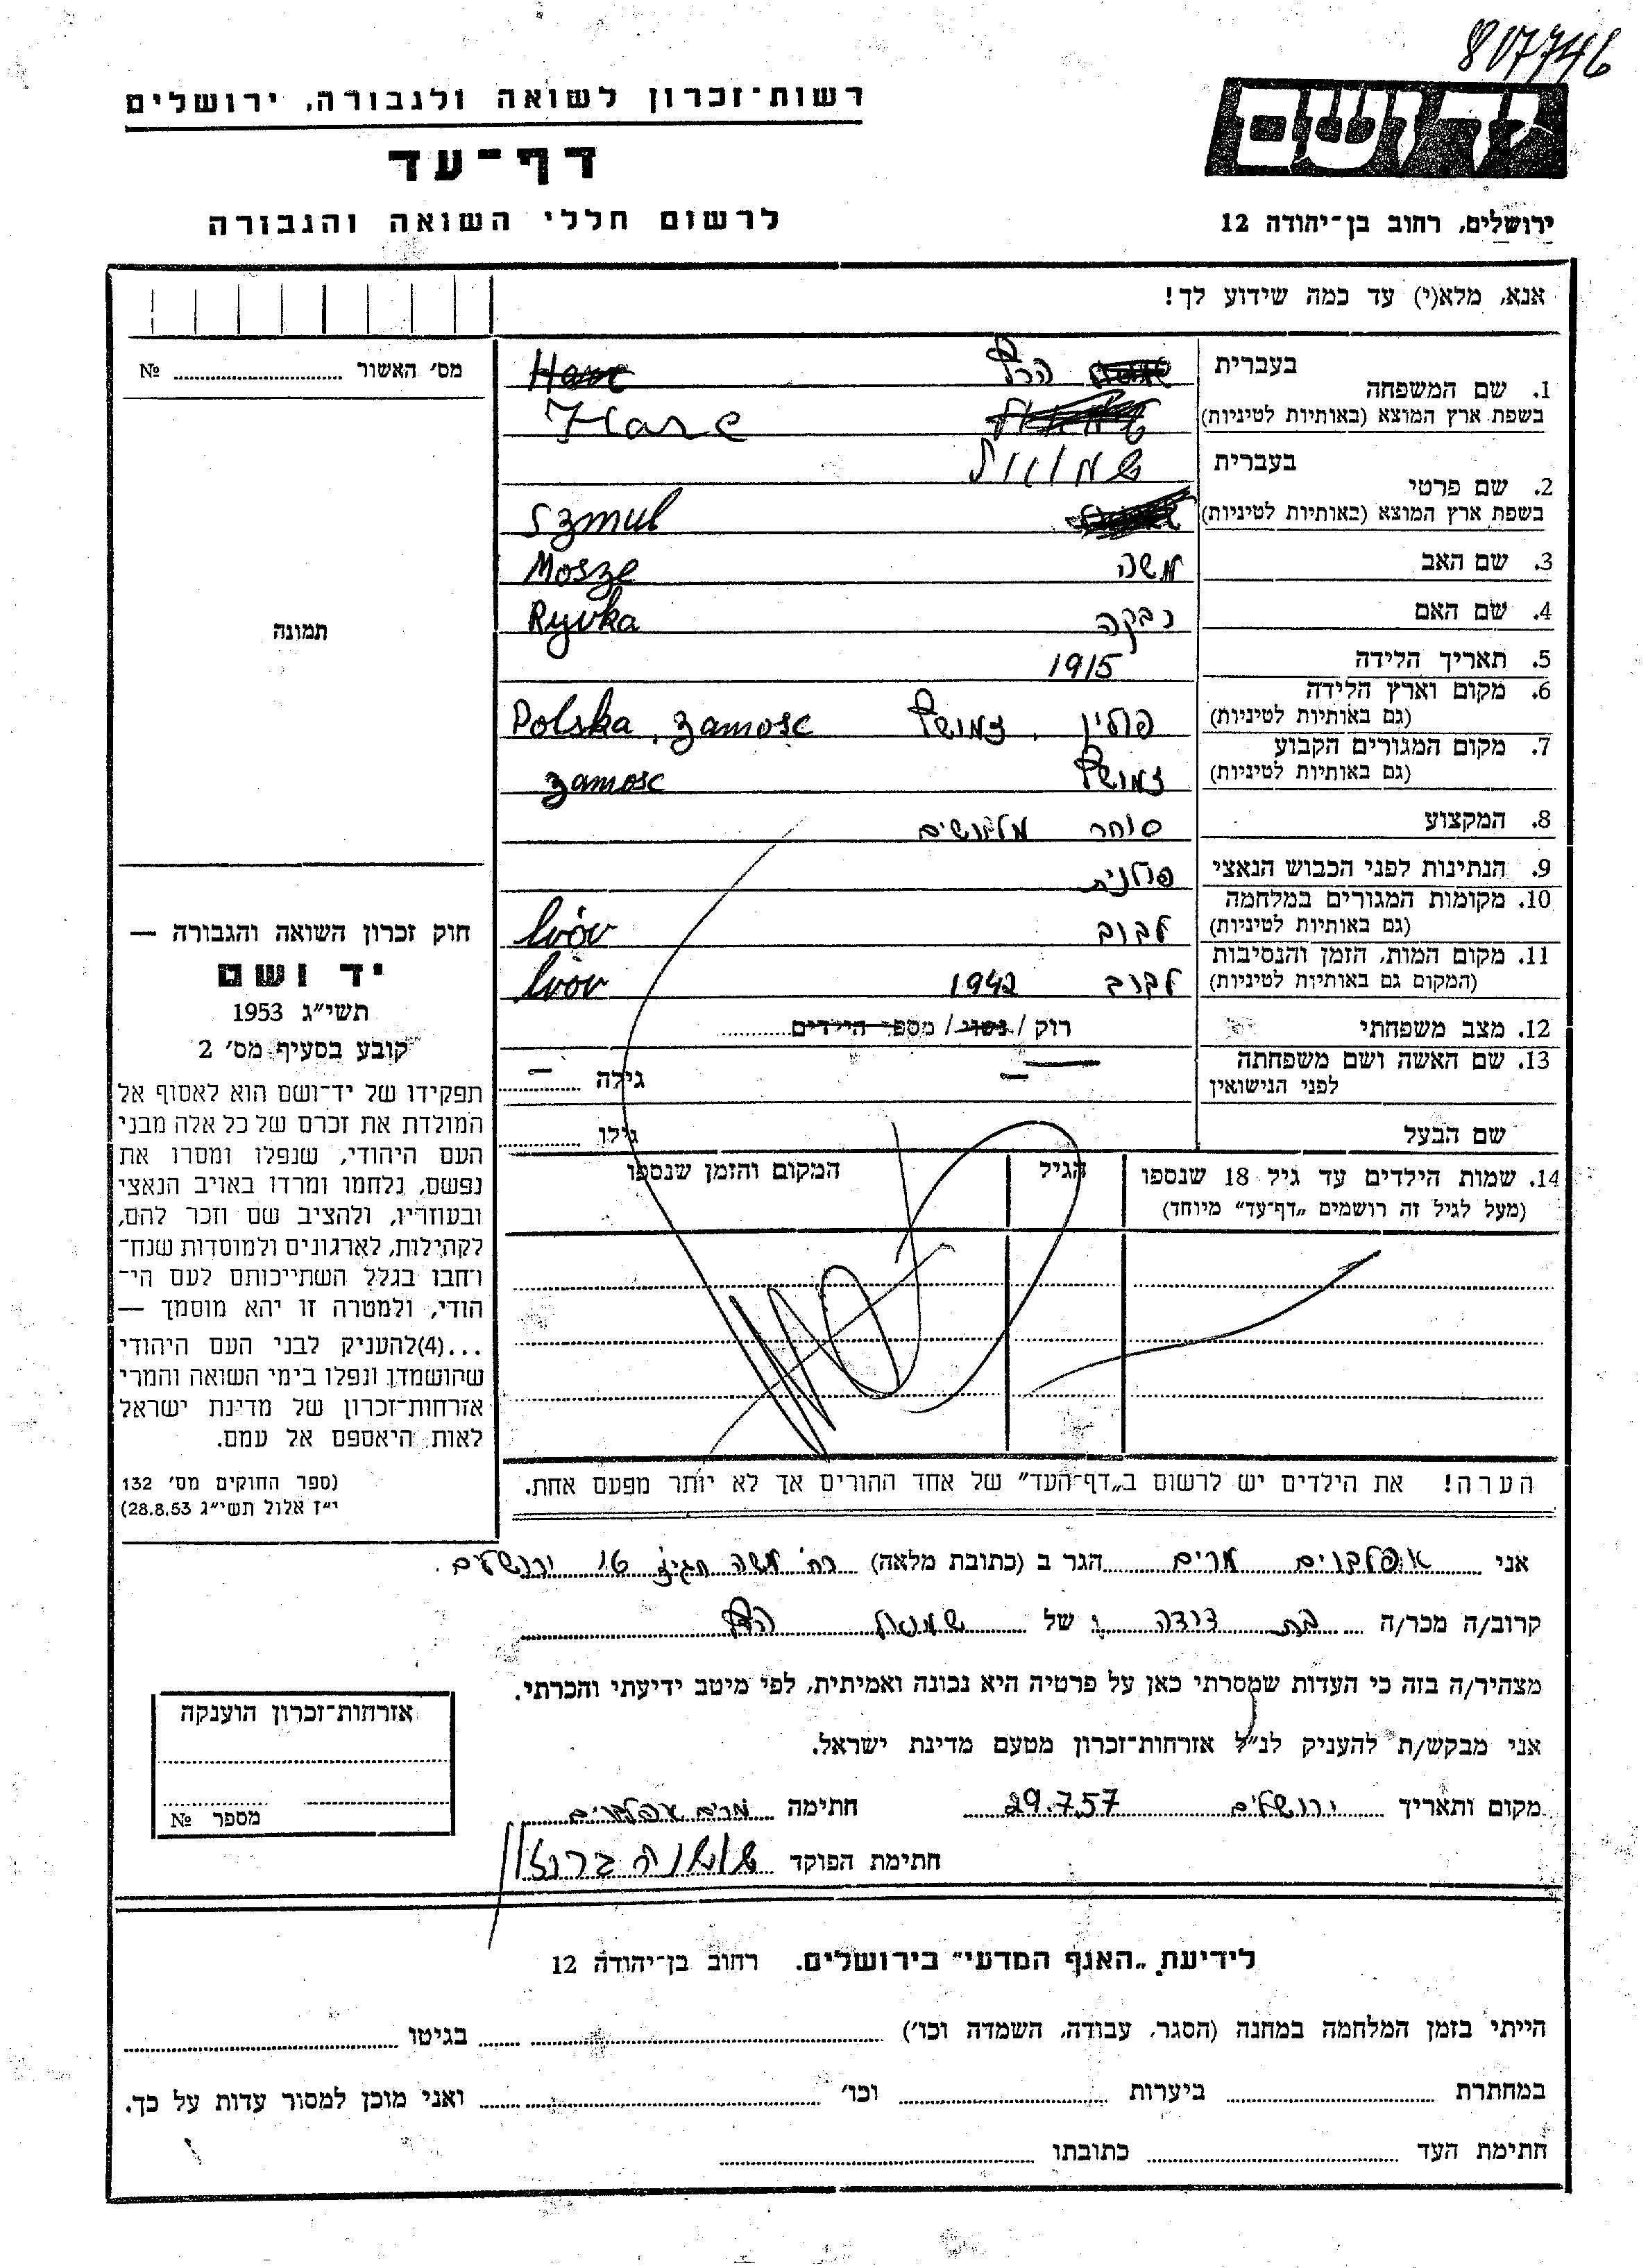 807746
רשות־זכרון לשואה ולגבורה, ירושלים
יד ושם
דף־עד
לרשום חללי השואה והגבורה
ירושלים, רחוב בן־יהודה 12
אנא, מלא(י) עד כמה שידוע לך!
מס׳ האשור № 
תמונה
חוק זכרון השואה והגבורה —
יד ושם
תשי״ג 1953
קובע בסעיף מס׳ 2
תפקידו של יד־ושם הוא לאסוף אל
המולדת את זכרם של כל אלה מבני
העם היהודי, שנפלו ומסרו את
נפשם, נלחמו ומרדו באויב הנאצי
ובעוזריו, ולהציב שם וזכר להם,
לקהילות, לארגונים ולמוסדות שנח־
רחבו בגלל השתייכותם לעם הי־
הודי, ולמטרה זו יהא מוסמך —
...(4)להעניק לבני העם היהודי
שהושמדו ונפלו בימי השואה והמרי
אזרחות־זכרון של מדינת ישראל
לאות היאספם אל עמם.
(ספר החוקים מס׳ 132
י״ז אלול תשי״ג 28.8.53)
1. שם המשפחה בעברית הרץ
בשפת ארץ המוצא (באותיות לטיניות) Harc
2. שם פרטי בעברית שמואל
בשפת ארץ המוצא (באותיות לטיניות) Szmul
3. שם האב משה Mosze
4. שם האם רבקה Ryvka
5. תאריך הלידה 1915
6. מקום וארץ הלידה (גם באותיות לטיניות) פולין, זמושץ Polska, Zamosc
7. מקום המגורים הקבוע (גם באותיות לטיניות) זמושץ Zamosc
8. המקצוע סוחר מלבושים
9. הנתינות לפני הכבוש הנאצי פולנית
10. מקומות המגורים במלחמה (גם באותיות לטיניות) לבוב Lvóv
11. מקום המות, הזמן והנסיבות (המקום גם באותיות לטיניות) לבוב 1942 Lvov
12. מצב משפחתי רוק / נשוי / מספר הילדים
13. שם האשה ושם משפחתה לפני הנישואין — גילה —
שם הבעל גילו
14. שמות הילדים עד גיל 18 שנספו הגיל המקום והזמן שנספו
(מעל לגיל זה רושמים „דף־עד״ מיוחד)
הערה! את הילדים יש לרשום ב„דף־העד״ של אחד ההורים אך לא יותר מפעם אחת.
אני מרים הגר ב (כתובת מלאה) רח׳ משה חגיז 10 ירושלים.
קרוב/ה מכר/ה בת דודה של שמואל הרץ
מצהיר/ה בזה כי העדות שמסרתי כאן על פרטיה היא נכונה ואמיתית, לפי מיטב ידיעתי והכרתי.
אני מבקש/ת להעניק לנ״ל אזרחות־זכרון מטעם מדינת ישראל.
מקום ותאריך ירושלים 29.7.57 חתימה מרים
חתימת הפוקד שושנה
אזרחות־זכרון הוענקה
מספר №
לידיעת „האגף המדעי״ בירושלים. רחוב בן־יהודה 12
הייתי בזמן המלחמה במחנה (הסגר, עבודה, השמדה וכו׳) בגיטו
במחתרת ביערות וכו׳ ואני מוכן למסור עדות על כך.
חתימת העד כתובתו